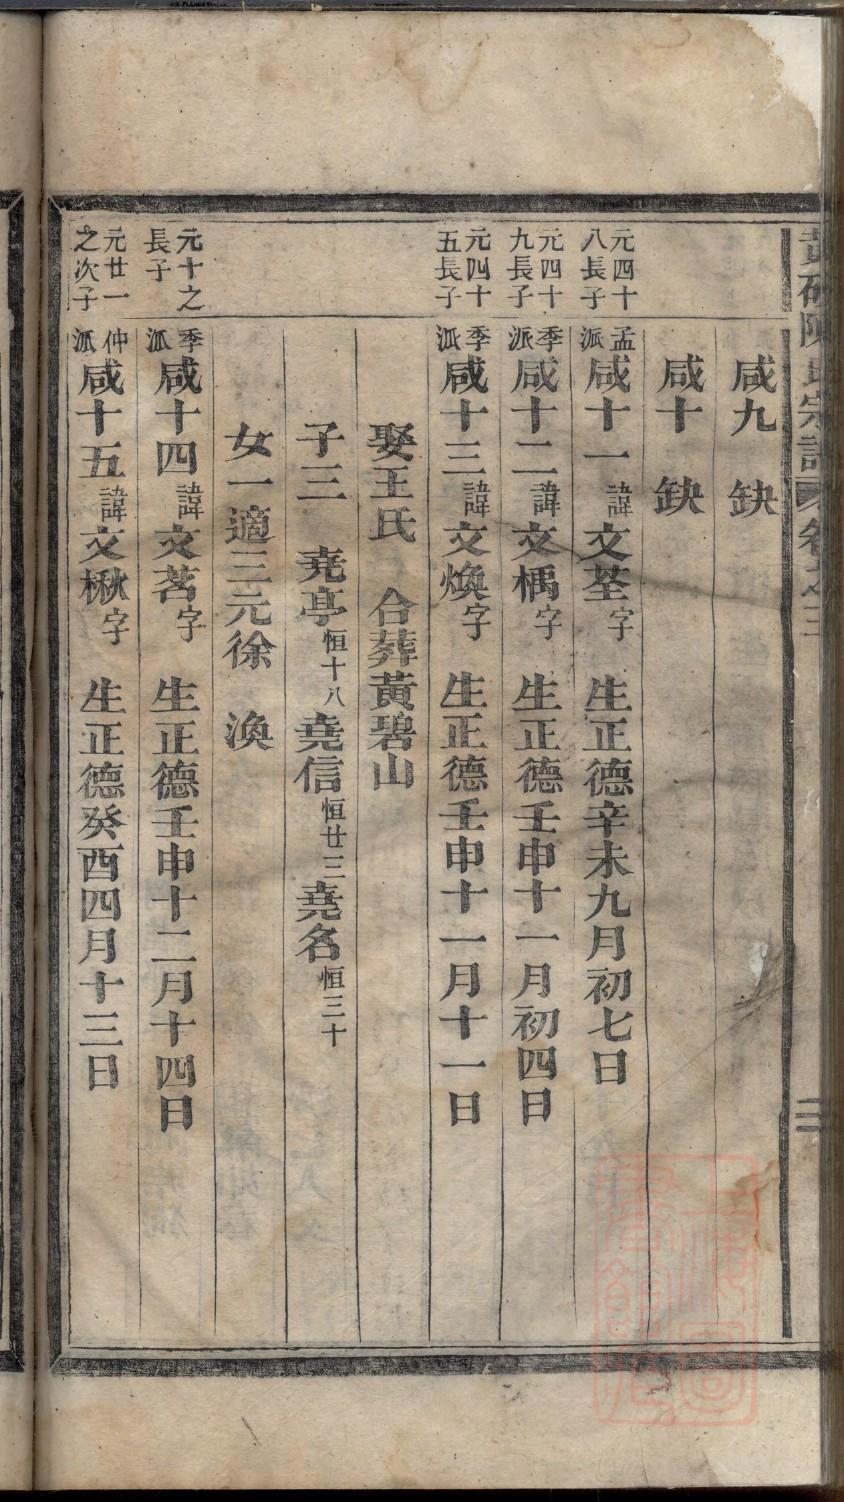 黃碧陳氏宗譜 卷之三
二
咸九 缺
咸十 缺
元四十八長子 孟派 咸十一 諱文荃字 生正德辛未九月初七日
元四十九長子 季派 咸十二 諱文楀字 生正德壬申十一月初四日
元四十五長子 季派 咸十三 諱文煥字 生正德壬申十一月十一日
娶王氏 合葬黃碧山
子三 堯亭 恒十八 堯信 恒廿三 堯名 恒三十
女一適三元徐 渙
元十之長子 季派 咸十四 諱文茗字 生正德壬申十二月十四日
元廿一之次子 仲派 咸十五 諱文楸字 生正德癸酉四月十三日